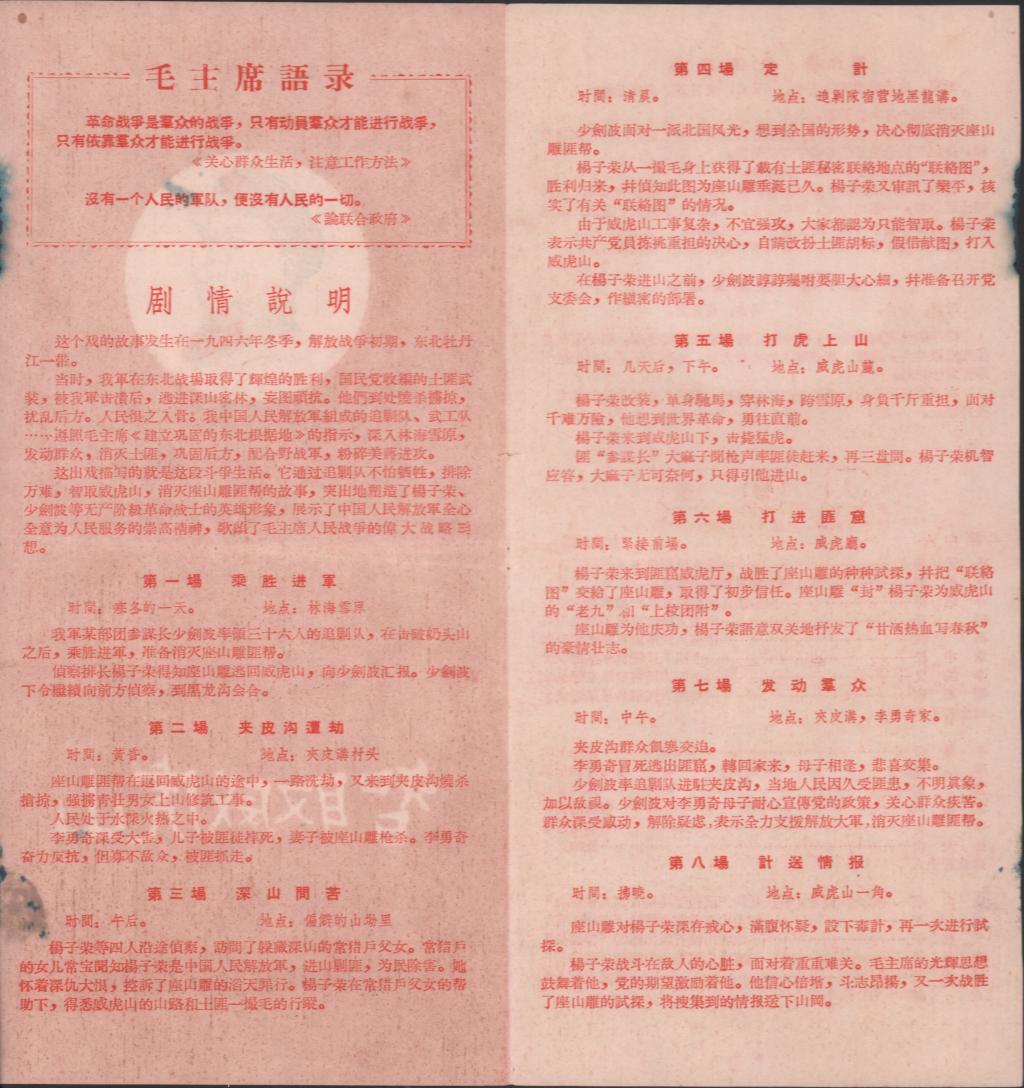 毛主席語录
革命战爭是羣众的战爭，只有动員羣众才能进行战爭，
只有依靠羣众才能进行战爭。
《关心群众生活，注意工作方法》
沒有一个人民的軍队，便沒有人民的一切。
《論联合政府》
剧情說明
这个戏的故事发生在一九四六年冬季，解放战爭初期，东北牡丹
江一带。
当时，我軍在东北战場取得了輝煌的胜利，国民党收編的土匪武
装，被我軍击潰后，逃进深山密林，妄图頑抗。他們到处燒杀擄掠，
扰乱后方。人民恨之入骨。我中国人民解放軍組成的追剿队、武工队
……遵照毛主席《建立巩固的东北根据地》的指示，深入林海雪原，
发动群众，消灭土匪，巩固后方，配合野战軍，粉碎美蔣进攻。
这出戏描写的就是这段斗爭生活。它通过追剿队不怕牺牲，排除
万难，智取威虎山，消灭座山雕匪帮的故事，突出地塑造了楊子荣、
少劍波等无产阶級革命战士的英雄形象，展示了中国人民解放軍全心
全意为人民服务的崇高精神，歌頌了毛主席人民战爭的偉大战略思
想。
第一場　乘胜进軍
时間：寒冬的一天。　地点：林海雪原
我軍某部团参謀长少劍波率領三十六人的追剿队，在击破奶头山
之后，乘胜进軍，准备消灭座山雕匪帮。
偵察排长楊子荣得知座山雕逃回威虎山，向少劍波汇报。少劍波
下令繼續向前方偵察，到黑龙沟会合。
第二場　夹皮沟遭劫
时間：黄昏。　地点：夹皮溝村头
座山雕匪帮在返回威虎山的途中，一路洗劫，又来到夹皮沟燒杀
搶掠，强擄青壮男女上山修筑工事。
人民处于水深火热之中。
李勇奇深受大害，儿子被匪徒摔死，妻子被座山雕枪杀。李勇奇
奋力反抗，但寡不敌众，被匪抓走。
第三場　深山問苦
时間：午后。　地点：偏僻的山坳里
楊子荣等四人沿途偵察，訪問了躲藏深山的常猎戶父女。常猎戶
的女儿常宝聞知楊子荣是中国人民解放軍，进山剿匪，为民除害。她
怀着深仇大恨，控訴了座山雕的滔天罪行。楊子荣在常猎戶父女的帮
助下，得悉威虎山的山路和土匪一撮毛的行蹤。
第四場　定計
时間：清晨。　地点：追剿隊宿营地黑龍溝。
少劍波面对一派北国风光，想到全国的形势，决心彻底消灭座山
雕匪帮。
楊子荣从一撮毛身上获得了載有土匪秘密联絡地点的“联絡图”，
胜利归来，幷偵知此图为座山雕垂涎已久。楊子荣又审訊了欒平，核
实了有关“联絡图”的情况。
由于威虎山工事复杂，不宜强攻，大家都認为只能智取。楊子荣
表示共产党員拣挑重担的决心，自請改扮土匪胡标，假借献图，打入
威虎山。
在楊子荣进山之前，少劍波諄諄囑咐要胆大心細，幷准备召开党
支委会，作縝密的部署。
第五場　打虎上山
时間：几天后，下午。　地点：威虎山麓。
楊子荣改装，单身馳馬，穿林海，跨雪原，身負千斤重担，面对
千难万险，他想到世界革命，勇往直前。
楊子荣来到威虎山下，击毙猛虎。
匪“参謀长”大麻子聞枪声率匪徒赶来，再三盘問。楊子荣机智
应答，大麻子无可奈何，只得引他进山。
第六場　打进匪窟
时間：緊接前場。　地点：威虎廳。
楊子荣来到匪窟威虎厅，战胜了座山雕的种种試探，幷把“联絡
图”交給了座山雕，取得了初步信任。座山雕“封”楊子荣为威虎山
的“老九”和“上校团附”。
座山雕为他庆功，楊子荣語意双关地抒发了“甘酒热血写春秋”
的豪情壮志。
第七場　发动羣众
时間：中午。　地点：夾皮溝，李勇奇家。
夹皮沟群众飢寒交迫。
李勇奇冒死逃出匪窟，轉回家来，母子相逢，悲喜交集。
少劍波率追剿队进駐夹皮沟，当地人民因久受匪患，不明眞象，
加以敌視。少劍波对李勇奇母子耐心宣傳党的政策，关心群众疾苦。
群众深受感动，解除疑虑，表示全力支援解放大軍，消灭座山雕匪帮。
第八場　計送情报
时間：拂曉。　地点：威虎山一角。
座山雕对楊子荣深存戒心，滿腹怀疑，設下毒計，再一次进行試
探。
楊子荣战斗在敌人的心脏，面对着重重难关。毛主席的光輝思想
鼓舞着他，党的期望激励着他。他信心倍增，斗志昂揚，又一次战胜
了座山雕的試探，将搜集到的情报送下山岡。